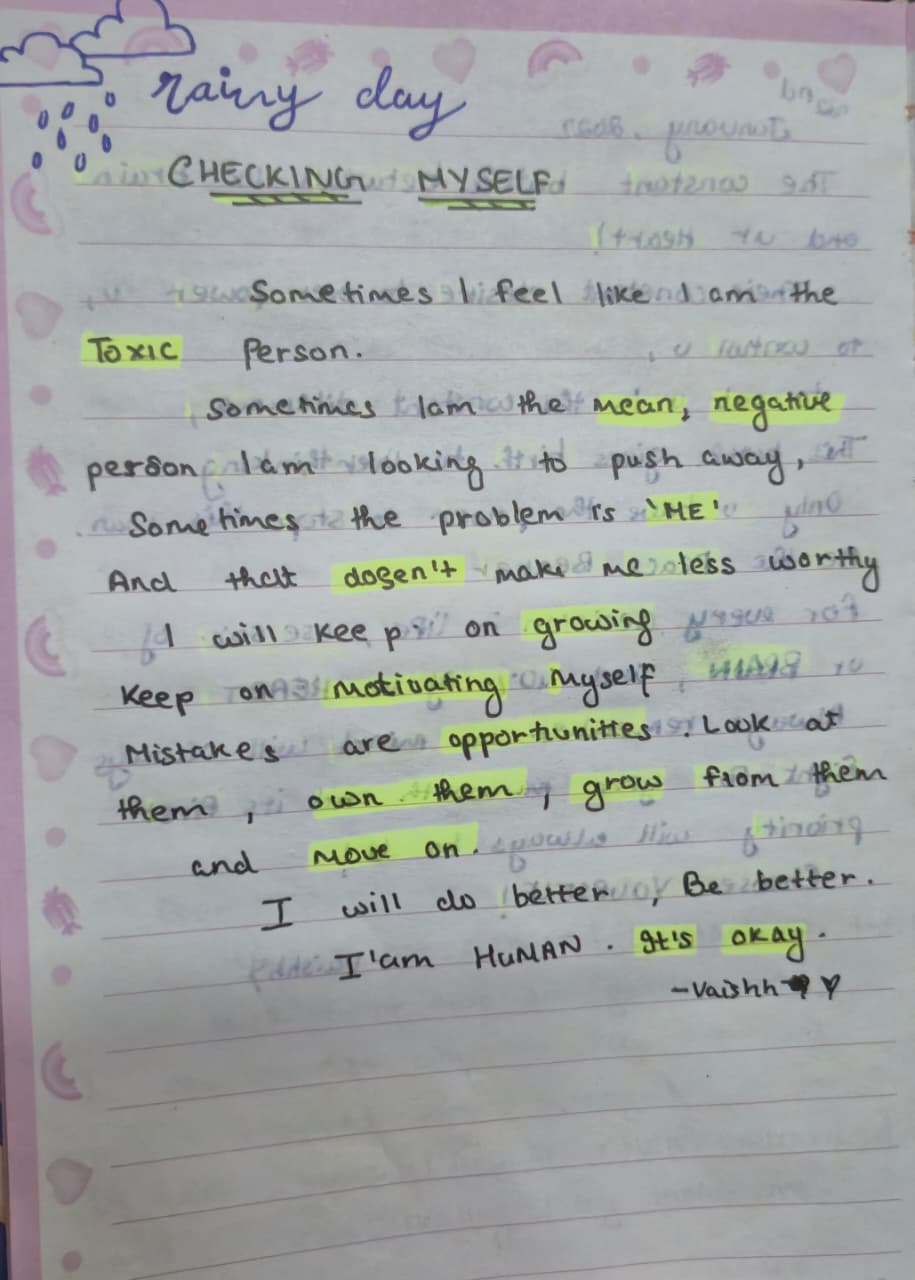 rainy day
CHECKING MYSELF
Sometimes I feel like I am the
TOXIC Person.
Sometimes Iam the mean, negative
person Iam looking to push away,
Sometimes the problem is 'ME'
And that dosen't make me less worthy
I will keep on growing
Keep on Motivating Myself
Mistakes are opportunities. Look at
them, own them, grow from them
and Move on.
I will do better, Be better.
I'am HUMAN. It's okay.
-Vaishh